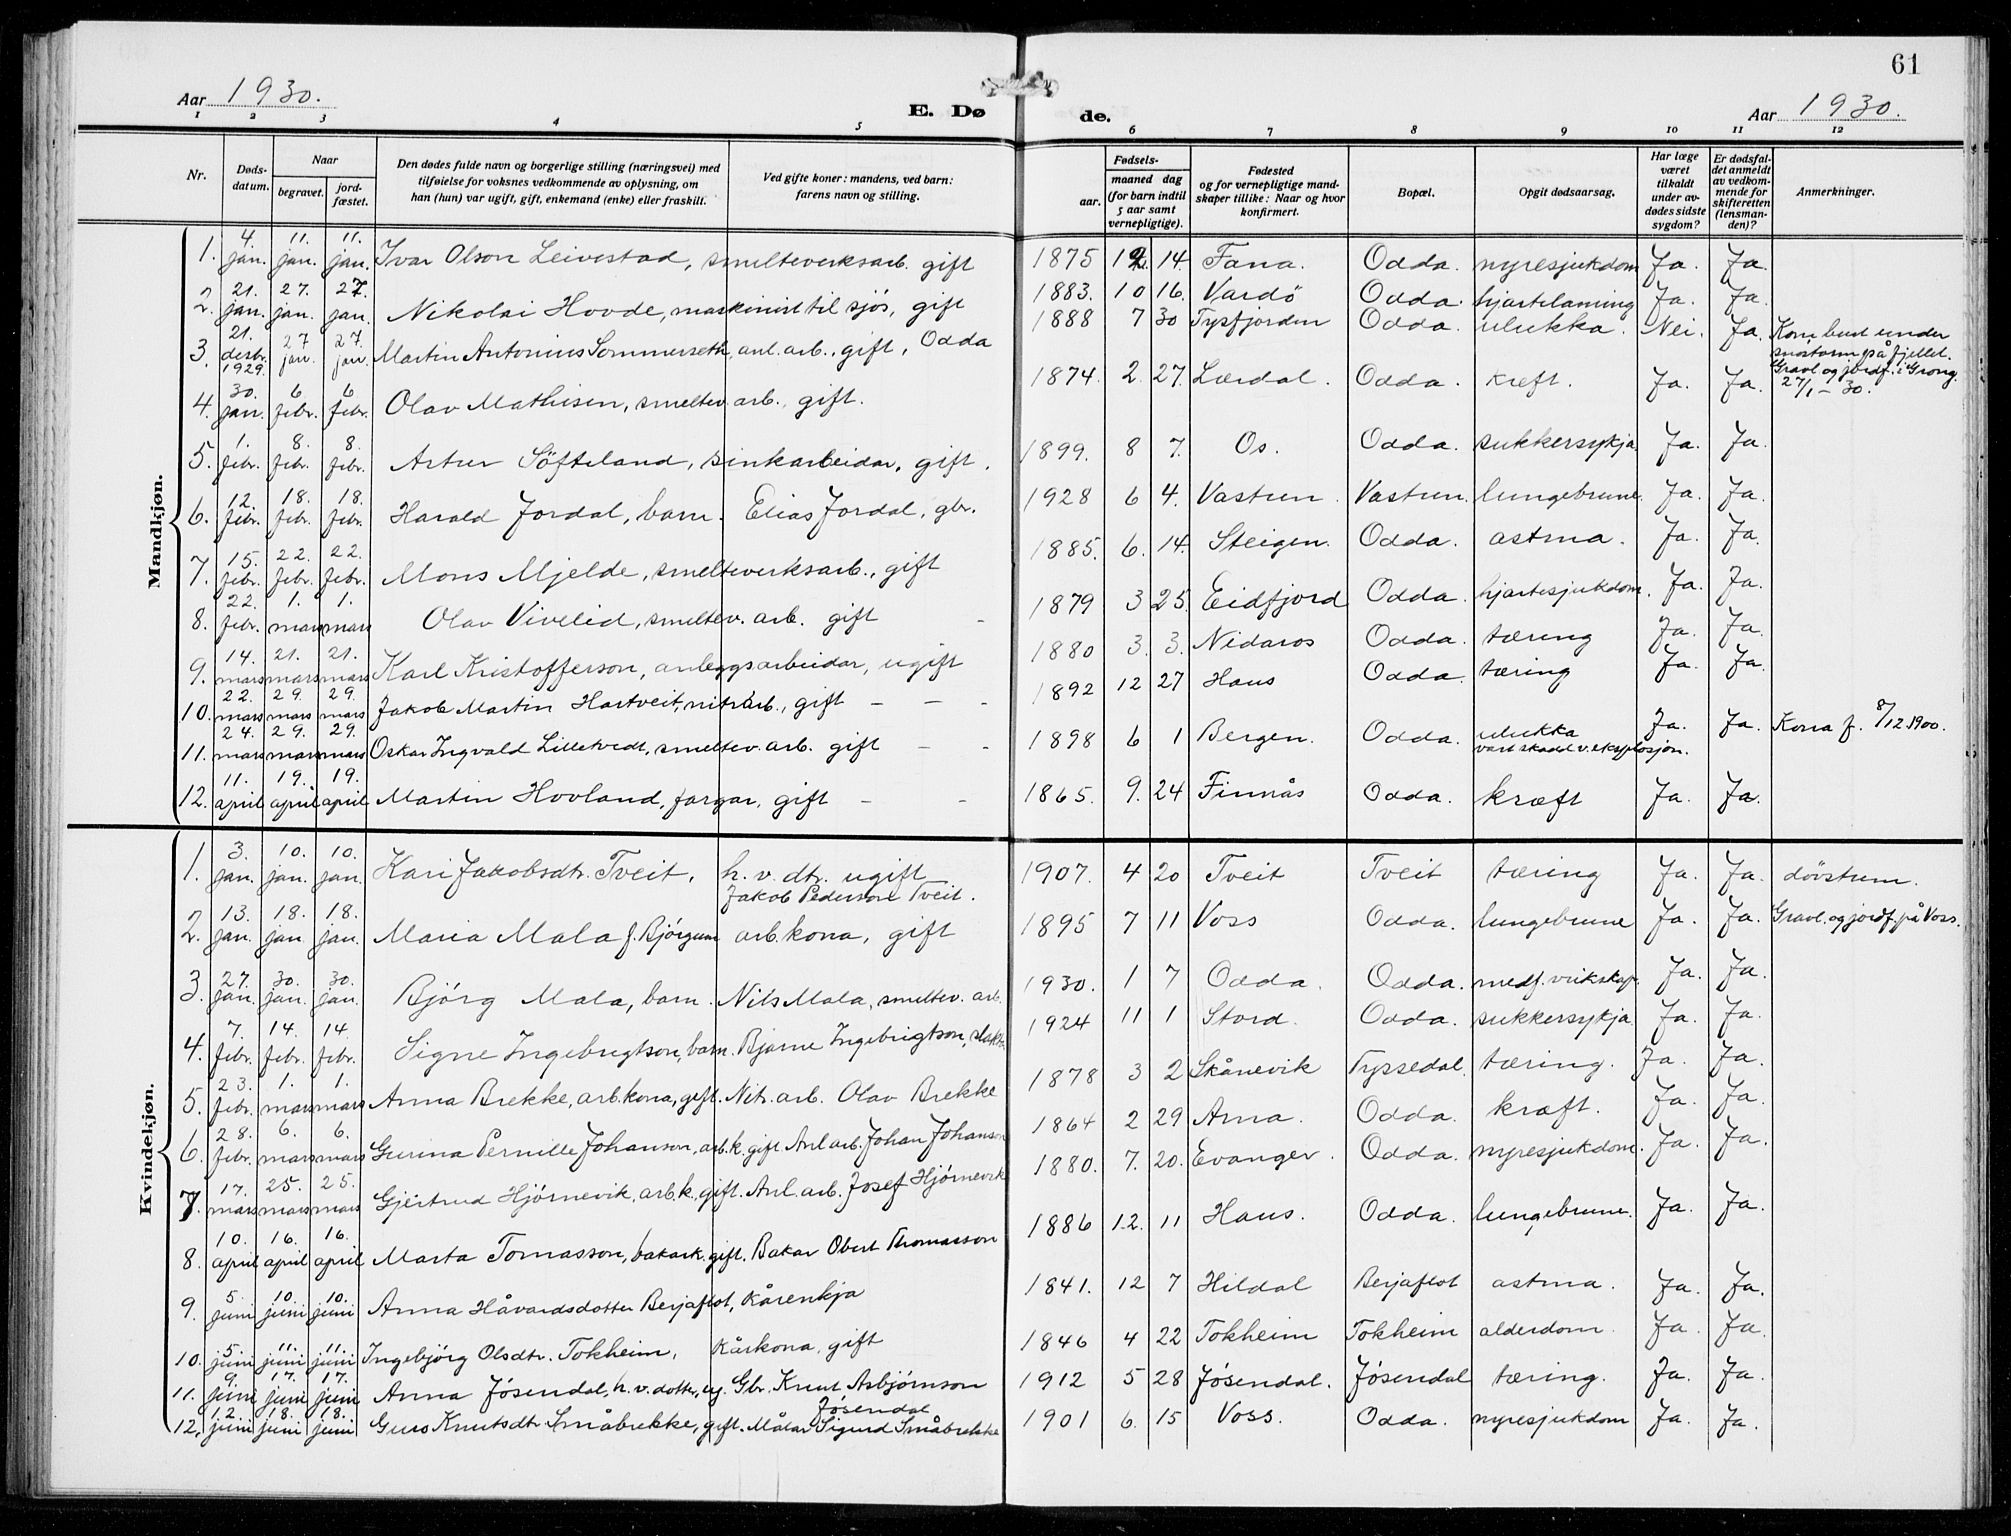 61
Aar 1930.
E. Døde.
Aar 1930.
1 2 3 4 5 6 7 8 9 10 11 12
Nr. Døds-datum. Naar begravet. jord-fæstet. Den dødes fulde navn og borgerlige stilling (næringsvei) med tilføielse for voksnes vedkommende av oplysning, om han (hun) var ugift, gift, enkemand (enke) eller fraskilt. Ved gifte koner: mandens, ved barn: farens navn og stilling. Fødsels- aar. maaned dag (for barn indtil 5 aar samt vernepligtige). Fødested og for vernepligtige mandskaper tillike: Naar og hvor konfirmert. Bopæl. Opgit dødsaarsag. Har læge været tilkaldt under avdødes sidste sygdom? Er dødsfaldet anmeldt av vedkommende for skifteretten (lensmanden)? Anmerkninger.
Mandkjøn.
1. 4. jan. 11. jan. 11. jan. Ivar Olson Leivestad, smelteverksarb. gift 1875 12 14. Fana. Odda. nyresjukdom Ja. Ja.
2. 21. jan. 27. jan. 27. jan. Nikolai Hovde, maskinist til sjøs, gift 1883. 10 16. Vardö Odda. hjartelaming Ja. Ja.
3. 21. desbr. 1929. 27 jan. 27. jan. Martin Antonius Sommerseth, anl. arb., gift, Odda 1888 7 30 Tysfjorden Odda. ulukka. Nei. Ja. Kom burt under snostorm på fjellet. Gravl. og jordf. i Grong. 27/1 – 30.
4. 30. jan. 6 febr. 6 febr. Olav Mathisen, smeltev. arb., gift. 1874. 2. 27. Lærdal. Odda. kreft. Ja. Ja.
5. 1. febr. 8. febr. 8. febr. Artur Söfteland, sinkarbeidar, gift. 1899. 8 7. Os. Odda. sukkersykja. Ja. Ja.
6. 12. febr. 18. febr. 18. febr. Harald Jordal, barn. Elias Jordal, gbr. 1928 6 4. Vastun. Vastun. lungebrune. Ja. Ja.
7. 15. febr. 22. febr. 22. febr. Mons Mjelde, smelteverksarb., gift 1885. 6. 14. Steigen. Odda. astma. Ja. Ja.
8. 22. febr. 1. mars 1. mars Olav Vivelid, smeltev. arb. gift - 1879 3 25. Eidfjord Odda. hjartesjukdom. Ja. Ja.
9. 14. mars 21. mars 21. mars Karl Kristofferson, anleggsarbeidar, ugift 1880 3. 3. Nidaros Odda. tæring Ja. Ja.
10. 22. mars 29. mars 29. mars Jakob Martin Hartveit, nitrarb., gift - - - 1892 12 27 Haus Odda. tæring Ja. Ja.
11. 24. mars 29. mars 29. mars Oskar Ingvald Lilletvedt, smeltev. arb. gift - - 1898 6 1 Bergen. Odda. ulukka vart skadd v. eksplosjon. Ja. Ja. Kona f. 8/12 1900.
12. 11. april 19. april 19. april Martin Hovland, fargar, gift - - 1865. 9. 24 Finnås Odda. kræft Ja. Ja.
Kvindekjøn.
1. 3. jan. 10. jan. 10. jan. Kari Jakobsdtr. Tveit, h. v. dtr. ugift Jakob Pederson Tveit. 1907. 4 20 Tveit Tveit tæring Ja. Ja. dövstum.
2. 13. jan. 18. jan. 18. jan. Maria Mala f. Bjørgum arb. kona, gift 1895 7 11 Voss Odda. lungebrune Ja. Ja. Gravl. og jordf. på Voss.
3. 27. jan. 30. jan. 30. jan. Bjørg Mala, barn. Nils Mala, smeltev. arb. 1930. 1 7 Odda. Odda. medf. veikskap. Ja. Ja.
4. 7. febr. 14. febr. 14 febr. Signe Ingebrigtson, barn. Bjarne Ingebrigtson, 1924 11 1 Stord. Odda. sukkersykja Ja. Ja.
5. 23. febr. 1. mars 1. mars Anna Brekke, arb. kona, gift. Nitr. arb. Olav Brekke 1878 3 2 Skånevik Tyssedal. tæring. Ja. Ja.
6. 28. febr. 6. mars 6. mars Gurina Pernille Johanson, arb. k. gift. Anl. arb. Johan Johanson 1864 2 29 Arna. Odda. kræft. Ja. Ja.
7. 17. mars 25. mars 25. mars Gjertrud Hjørnevik, arb. k., gift. Anl. arb. Josef Hjørnevik 1880. 7. 20. Evanger. Odda. nyresjukdom. Ja. Ja.
8. 10. april 16. april 16. april Marta Tomasson, bakark. gift. Bakar Obert Thomasson 1886 12. 11 Haus. Odda. lungebrune. Ja. Ja.
9. 5 juni 10. juni 10. juni Anna Håvardsdotter Berjaflot, kårenkja 1841. 12 7 Hildal Berjaflot astma. Ja. Ja.
10. 5. juni 11. juni 11. juni Ingebjørg Olsdtr. Tokheim, Kårkona, gift 1846 4 22 Tokheim Tokheim alderdom. Ja. Ja.
11. 9. juni 17. juni 17. juni Anna Jøsendal, h. v. dotter, ug. Gbr. Knut Asbjørnson Jøsendal 1912 5 28 Jøsendal. Jøsendal tæring. Ja. Ja.
12. 12. juni 18. juni 18. juni Guro Knutsdtr. Småbrekke, gift. Målar Sigurd Småbrekke 1901 6. 15 Voss. Odda. nyresjukdom Ja. Ja.